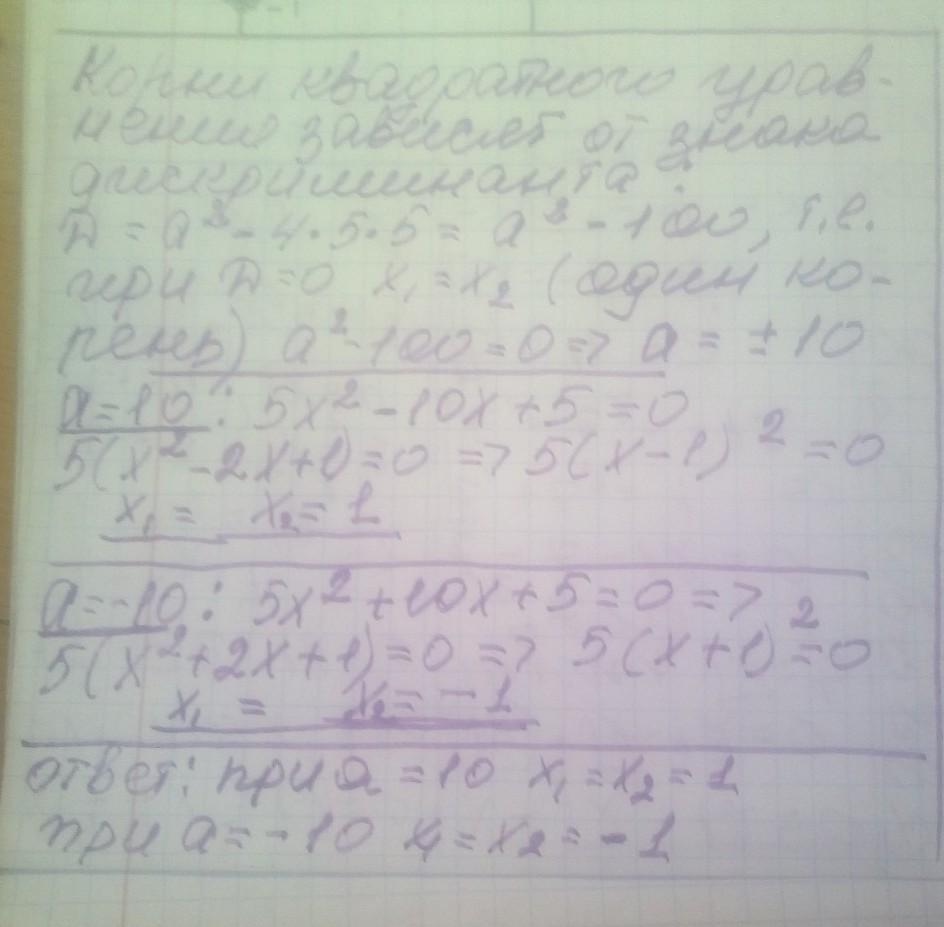 -1
Корни квадратного урав-
нения зависят от знака
дискриминанта:
D = a² - 4·5·5 = a² - 100, т.е.
при D = 0 x₁ = x₂ (один ко-
рень) a² - 100 = 0 => a = ± 10
a = 10: 5x² - 10x + 5 = 0
5(x² - 2x + 1) = 0 => 5(x - 1)² = 0
x₁ = x₂ = 1
a = -10: 5x² + 10x + 5 = 0 =>
5(x² + 2x + 1) = 0 => 5(x + 1)² = 0
x₁ = x₂ = -1
ответ: при a = 10 x₁ = x₂ = 1
при a = -10 x₁ = x₂ = -1